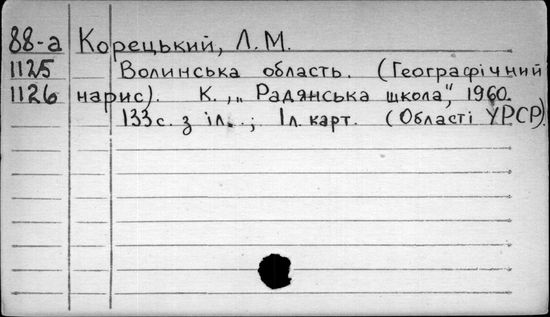 88-а Корецький, Л.М.
1125 Волинська область. (Географічний
1126 нарис). К., „Радянська школа", 1960.
133с. з іл..; 1л. карт. (Області УРСР).